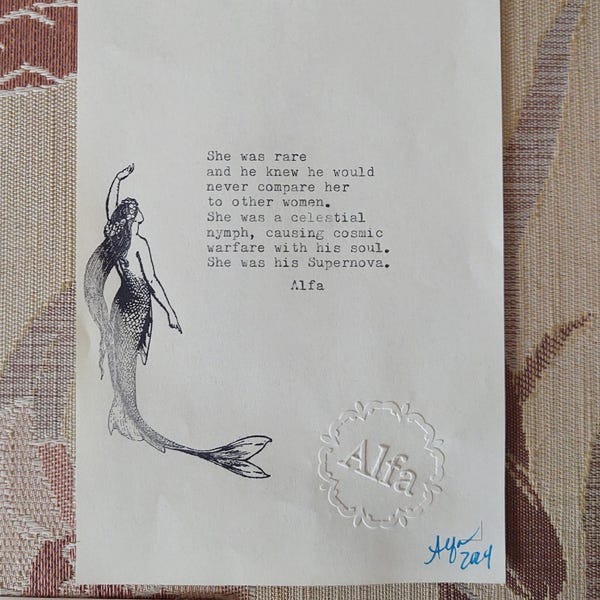 She was rare
and he knew he would
never compare her
to other women.
She was a celestial
nymph, causing cosmic
warfare with his soul.
She was his Supernova.
Alfa
Alfa
Alfa
2024